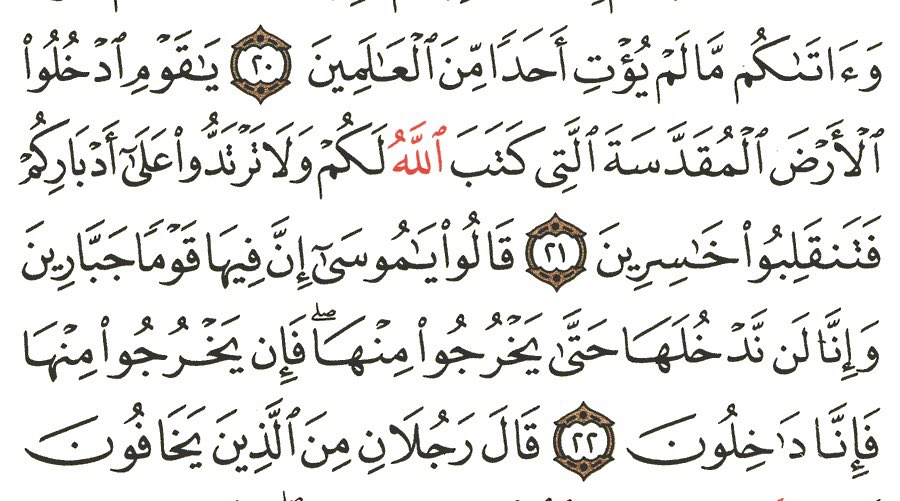 وَءَاتَىٰكُم مَّا لَمْ يُؤْتِ أَحَدًا مِّنَ ٱلْعَٰلَمِينَ ٢٠ يَٰقَوْمِ ٱدْخُلُوا۟
ٱلْأَرْضَ ٱلْمُقَدَّسَةَ ٱلَّتِى كَتَبَ ٱللَّهُ لَكُمْ وَلَا تَرْتَدُّوا۟ عَلَىٰٓ أَدْبَارِكُمْ
فَتَنقَلِبُوا۟ خَٰسِرِينَ ٢١ قَالُوا۟ يَٰمُوسَىٰٓ إِنَّ فِيهَا قَوْمًا جَبَّارِينَ
وَإِنَّا لَن نَّدْخُلَهَا حَتَّىٰ يَخْرُجُوا۟ مِنْهَا ۖ فَإِن يَخْرُجُوا۟ مِنْهَا
فَإِنَّا دَٰخِلُونَ ٢٢ قَالَ رَجُلَانِ مِنَ ٱلَّذِينَ يَخَافُونَ